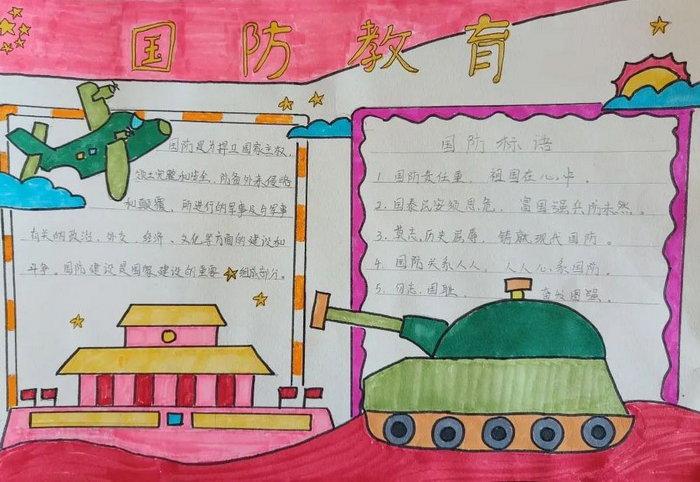 国防教育
国防是为捍卫国家主权、
领土完整和安全，防备外来侵略
和颠覆，所进行的军事及与军事
有关的政治、外交、经济、文化等方面的建设和
斗争。国防建设是国家建设的重要组成部分。
国防标语
1. 国防责任重，祖国在心中。
2. 国泰民安须思危，富国强兵防未然。
3. 莫忘历史屈辱，铸就现代国防。
4. 国防关系人人，人人心系国防。
5. 勿忘国耻，奋发图强。